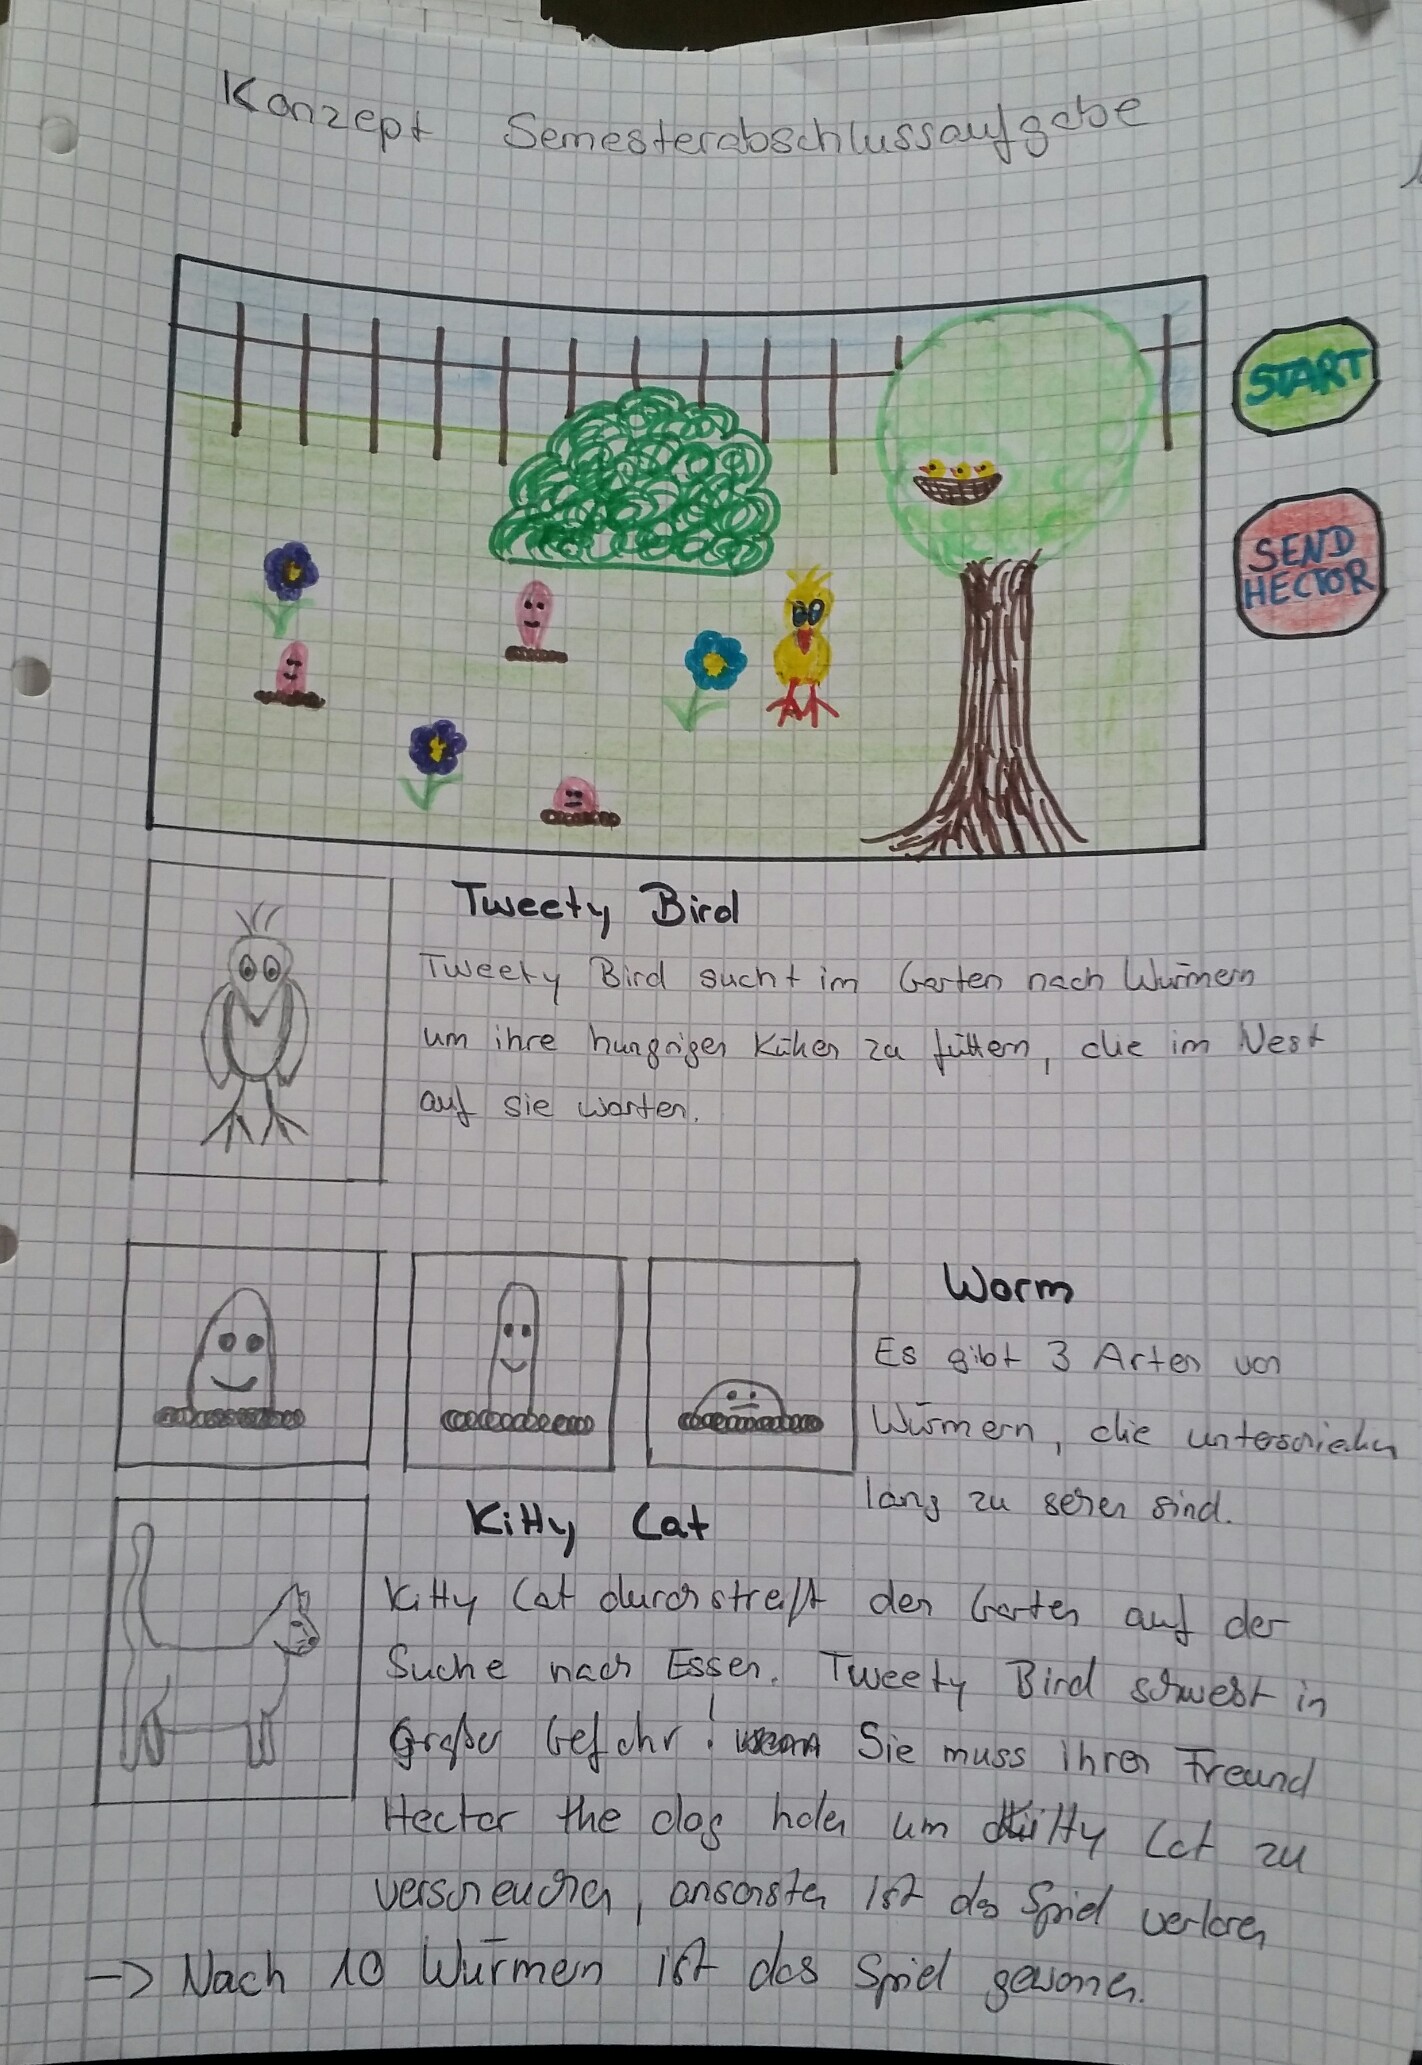 Konzept Semesterabschlussaufgabe
START
SEND
HECTOR
Tweety Bird
Tweety Bird sucht im Garten nach Würmern
um ihre hungrigen Küken zu füttern, die im Nest
auf sie warten.
Worm
Es gibt 3 Arten von
Würmern, die unterschiedlich
lang zu sehen sind.
Kitty Cat
Kitty Cat durchstreift den Garten auf der
Suche nach Essen. Tweety Bird schwebt in
großer Gefahr! Sie muss ihren Freund
Hector the dog holen um Kitty Cat zu
verscheuchen, ansonsten ist das Spiel verloren
-> Nach 10 Würmern ist das Spiel gewonnen.